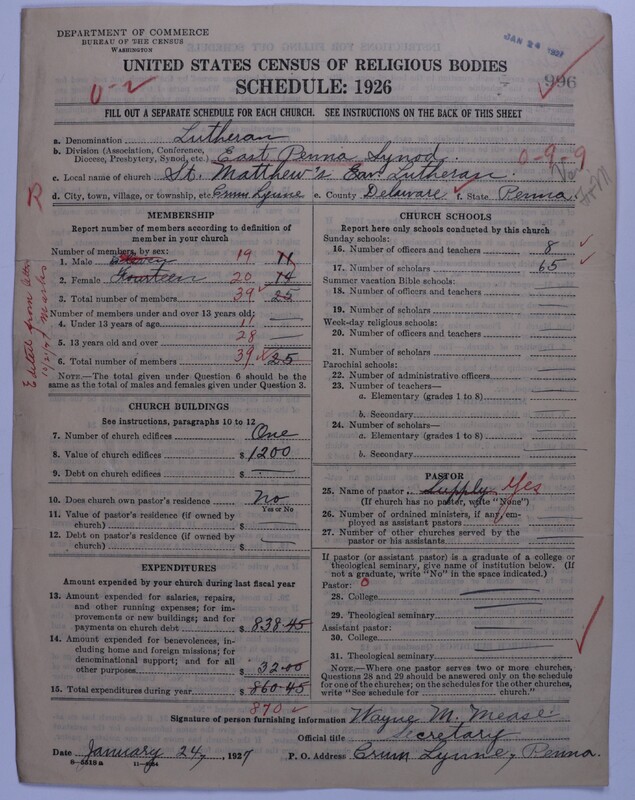 DEPARTMENT OF COMMERCE
BUREAU OF THE CENSUS
WASHINGTON
JAN 24 1927
UNITED STATES CENSUS OF RELIGIOUS BODIES
SCHEDULE: 1926
U-2
996
FILL OUT A SEPARATE SCHEDULE FOR EACH CHURCH. SEE INSTRUCTIONS ON THE BACK OF THIS SHEET
a. Denomination Lutheran
b. Division (Association, Conference, Diocese, Presbytery, Synod, etc.) East Penna Synod.
0-9-9
c. Local name of church St. Matthew's Evan Lutheran
d. City, town, village, or township, etc. Crum Lynne e. County Delaware f. State Penna.
MEMBERSHIP
Report number of members according to definition of member in your church
Number of members, by sex:
1. Male Eleven 19 11
2. Female Fourteen 20 14
3. Total number of members 39 25
Number of members under and over 13 years old:
4. Under 13 years of age 11
5. 13 years old and over 28
6. Total number of members 39 25
NOTE.—The total given under Question 6 should be the same as the total of males and females given under Question 3.
Edited from letter
CHURCH BUILDINGS
See instructions, paragraphs 10 to 12
7. Number of church edifices One
8. Value of church edifices $ 1200
9. Debt on church edifices $
10. Does church own pastor's residence No
Yes or No
11. Value of pastor's residence (if owned by church) $
12. Debt on pastor's residence (if owned by church) $
EXPENDITURES
Amount expended by your church during last fiscal year
13. Amount expended for salaries, repairs, and other running expenses; for improvements or new buildings; and for payments on church debt $ 838.45
14. Amount expended for benevolences, including home and foreign missions; for denominational support; and for all other purposes $ 32.00
15. Total expenditures during year $ 860.45
870
CHURCH SCHOOLS
Report here only schools conducted by this church
Sunday schools:
16. Number of officers and teachers 8
17. Number of scholars 65
Summer vacation Bible schools:
18. Number of officers and teachers
19. Number of scholars
Week-day religious schools:
20. Number of officers and teachers
21. Number of scholars
Parochial schools:
22. Number of administrative officers
23. Number of teachers—
a. Elementary (grades 1 to 8)
b. Secondary
24. Number of scholars—
a. Elementary (grades 1 to 8)
b. Secondary
PASTOR
25. Name of pastor Supply Yes
(If church has no pastor, write "None")
26. Number of ordained ministers, if any, employed as assistant pastors
27. Number of other churches served by the pastor or his assistants
If pastor (or assistant pastor) is a graduate of a college or theological seminary, give name of institution below. (If not a graduate, write "No" in the space indicated.)
Pastor: 0
28. College
29. Theological seminary
Assistant pastor:
30. College
31. Theological seminary
NOTE.—Where one pastor serves two or more churches, Questions 28 and 29 should be answered only on the schedule for one of the churches; on the schedules for the other churches, write "See schedule for church."
Signature of person furnishing information Wayne M. Mease
Official title Secretary
Date January 24, 1927 P. O. Address Crum Lynne, Penna.
8-5518 a